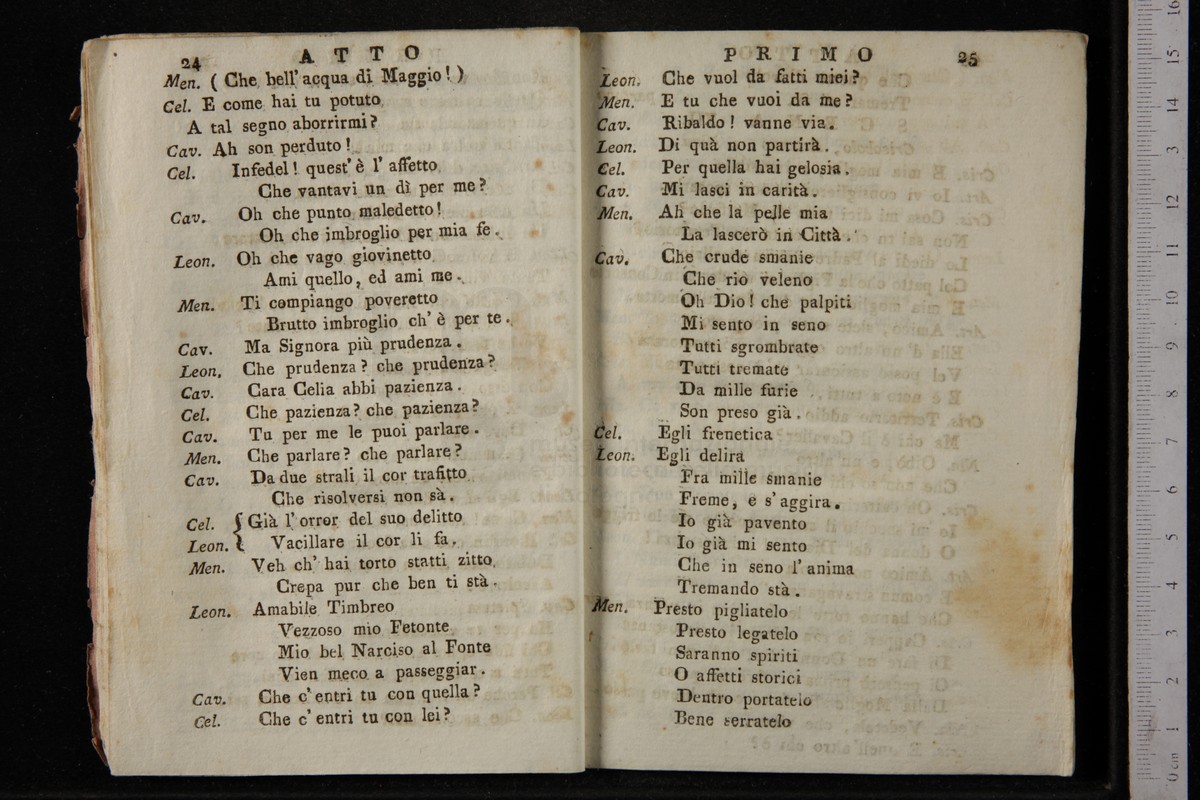 24 ATTO
Men. ( Che bell' acqua di Maggio! )
Cel. E come hai tu potuto
A tal segno aborrirmi?
Cav. Ah son perduto!
Cel. Infedel! quest' è l' affetto
Che vantavi un dì per me?
Cav. Oh che punto maledetto!
Oh che imbroglio per mia fe.
Leon. Oh che vago giovinetto
Ami quello, ed ami me.
Men. Ti compiango poveretto
Brutto imbroglio ch' è per te.
Cav. Ma Signora più prudenza.
Leon. Che prudenza? che prudenza?
Cav. Cara Celia abbi pazienza.
Cel. Che pazienza? che pazienza?
Cav. Tu per me le puoi parlare.
Men. Che parlare? che parlare?
Cav. Da due strali il cor trafitto
Che risolversi non sà.
Cel. { Già l' orror del suo delitto
Leon. { Vacillare il cor li fa.
Men. Veh ch' hai torto statti zitto,
Crepa pur che ben ti stà.
Leon. Amabile Timbreo
Vezzoso mio Fetonte
Mio bel Narciso al Fonte
Vien meco a passeggiar.
Cav. Che c' entri tu con quella?
Cel. Che c' entri tu con lei?
PRIMO 25
Leon. Che vuol da fatti miei?
Men. E tu che vuoi da me?
Cav. Ribaldo! vanne via.
Leon. Di quà non partirà.
Cel. Per quella hai gelosia.
Cav. Mi lasci in carità.
Men. Ah che la pelle mia
La lascerò in Città.
Cav. Che crude smanie
Che rio veleno
Oh Dio! che palpiti
Mi sento in seno
Tutti sgrombrate
Tutti tremate
Da mille furie
Son preso già.
Cel. Egli frenetica
Leon. Egli delira
Fra mille smanie
Freme, e s' aggira.
Io già pavento
Io già mi sento
Che in seno l' anima
Tremando stà.
Men. Presto pigliatelo
Presto legatelo
Saranno spiriti
O affetti storici
Dentro portatelo
Bene serratelo